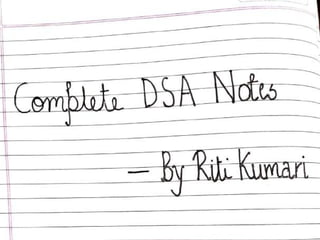 Complete DSA Notes
— By Riti Kumari